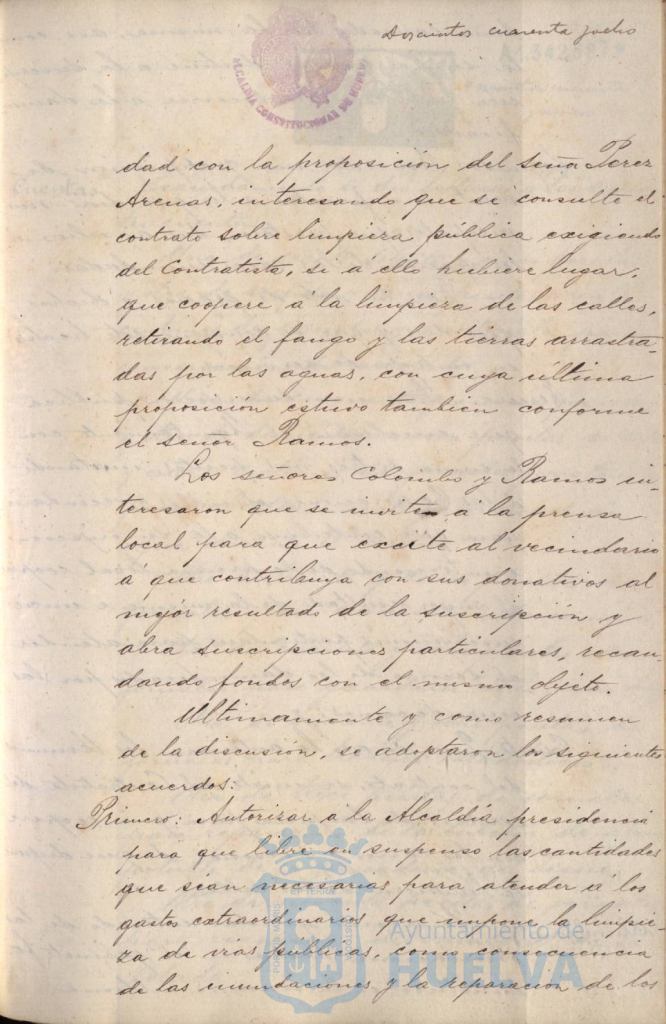 Doscientos cuarenta y ocho
ALCALDÍA CONSTITUCIONAL DE HUELVA
dad con la proposición del señor Perez
Arenas, interesando que se consulte el
contrato sobre limpieza pública exigiendo
del Contratista, si á ello hubiere lugar,
que coopere á la limpieza de las calles,
retirando el fango y las tierras arrastra-
das por las aguas, con cuya última
proposición estuvo tambien conforme
el señor Ramos.
Los señores Colombo y Ramos in-
teresaron que se invite á la prensa
local para que excite al vecindario
á que contribuya con sus donativos al
mejor resultado de la suscripción y
abra suscripciones particulares, recau
dando fondos con el mismo objeto.
Ultimamente y como resumen
de la discusión, se adoptaron los siguientes
acuerdos:
Primero: Autorizar á la Alcaldía presidencia
para que libre en suspenso las cantidades
que séan necesarias para atender á los
gastos extraordinarios que impone la limpie-
za de vías públicas, como consecuencia
de las inundaciones y la reparación de los
Ayuntamiento de
HUELVA